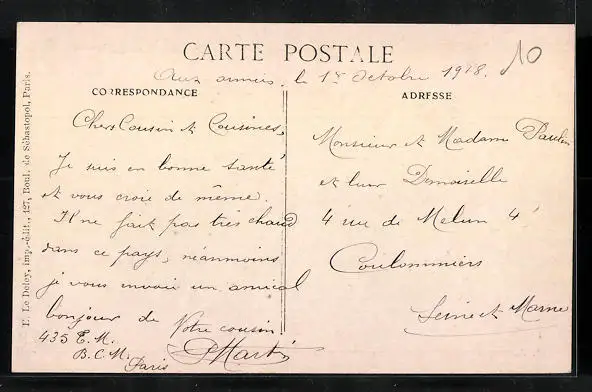 CARTE POSTALE
Aux armées, le 1er Octobre 1918.
10
CORRESPONDANCE
Chers Cousin et Cousines,
Je suis en bonne santé
et vous croie de même.
Il ne fait pas très chaud
dans ce pays, néanmoins
je vous envoie un amical
bonjour de Votre cousin
435 E.M.
B.C.M.
Paris
PMartin
ADRESSE
Monsieur et Madame Paulin
et leur Demoiselle
4 rue de Melun 4
Coulommiers
Seine et Marne
E. Le Deley, imp.-édit., 127, Boul. de Sébastopol, Paris.